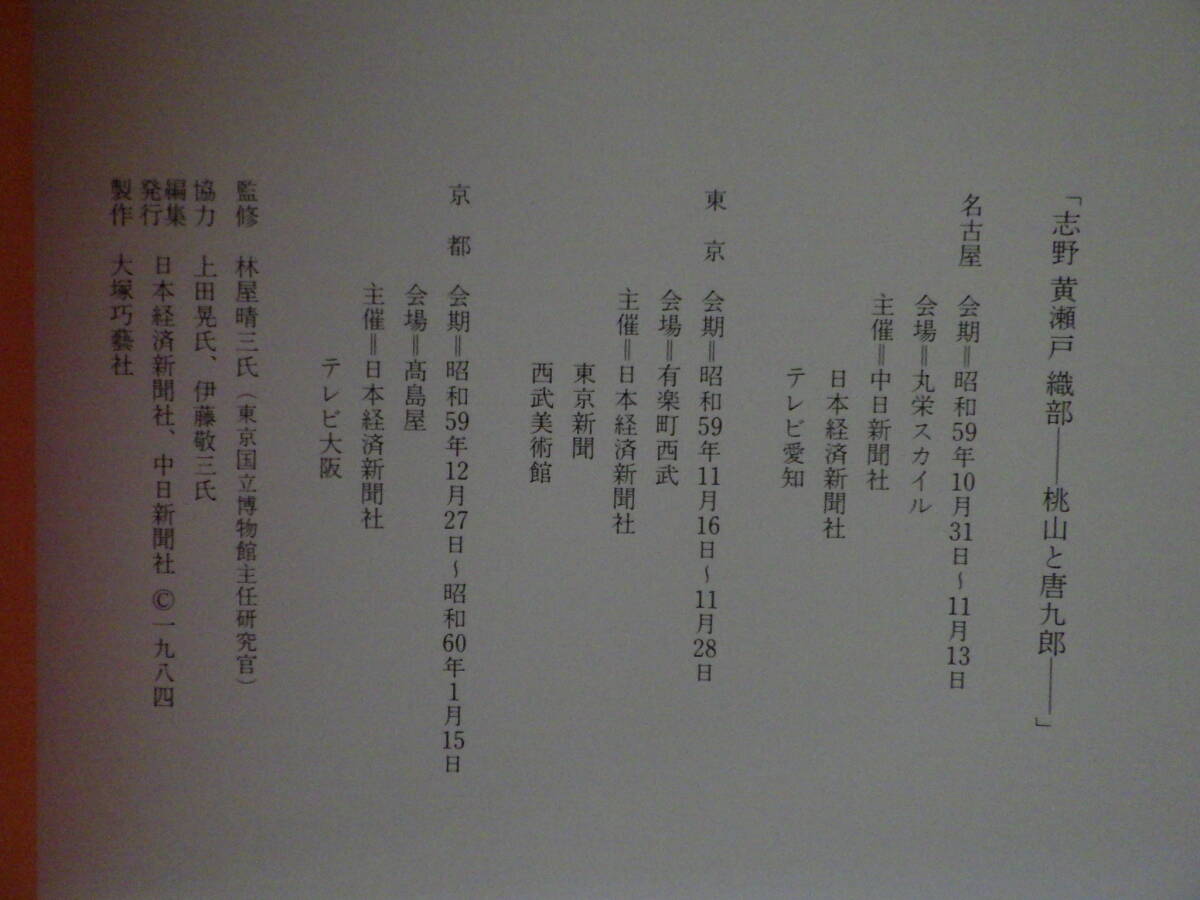 「志野 黄瀬戸 織部――桃山と唐九郎――」
名古屋 会期＝昭和59年10月31日～11月13日
会場＝丸栄スカイル
主催＝中日新聞社
日本経済新聞社
テレビ愛知
東京 会期＝昭和59年11月16日～11月28日
会場＝有楽町西武
主催＝日本経済新聞社
東京新聞
西武美術館
京都 会期＝昭和59年12月27日～昭和60年1月15日
会場＝髙島屋
主催＝日本経済新聞社
テレビ大阪
監修 林屋晴三氏（東京国立博物館主任研究官）
協力 上田晃氏、伊藤敬三氏
編集
発行 日本経済新聞社、中日新聞社 ©一九八四
製作 大塚巧藝社